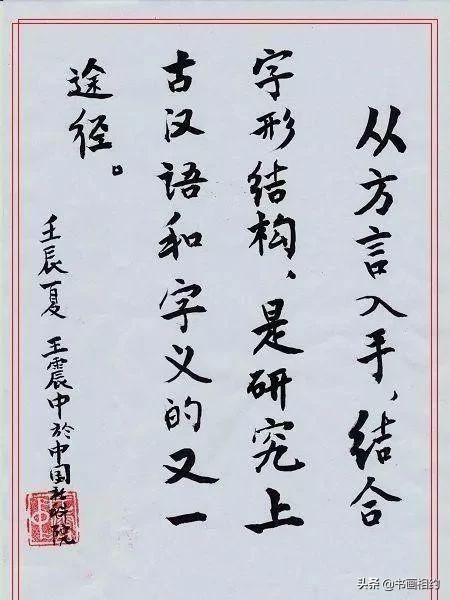 从方言入手，结合
字形结构，是研究上
古汉语和字义的又一
途径。
壬辰夏 王震中於中国社科院
头条@书画相约